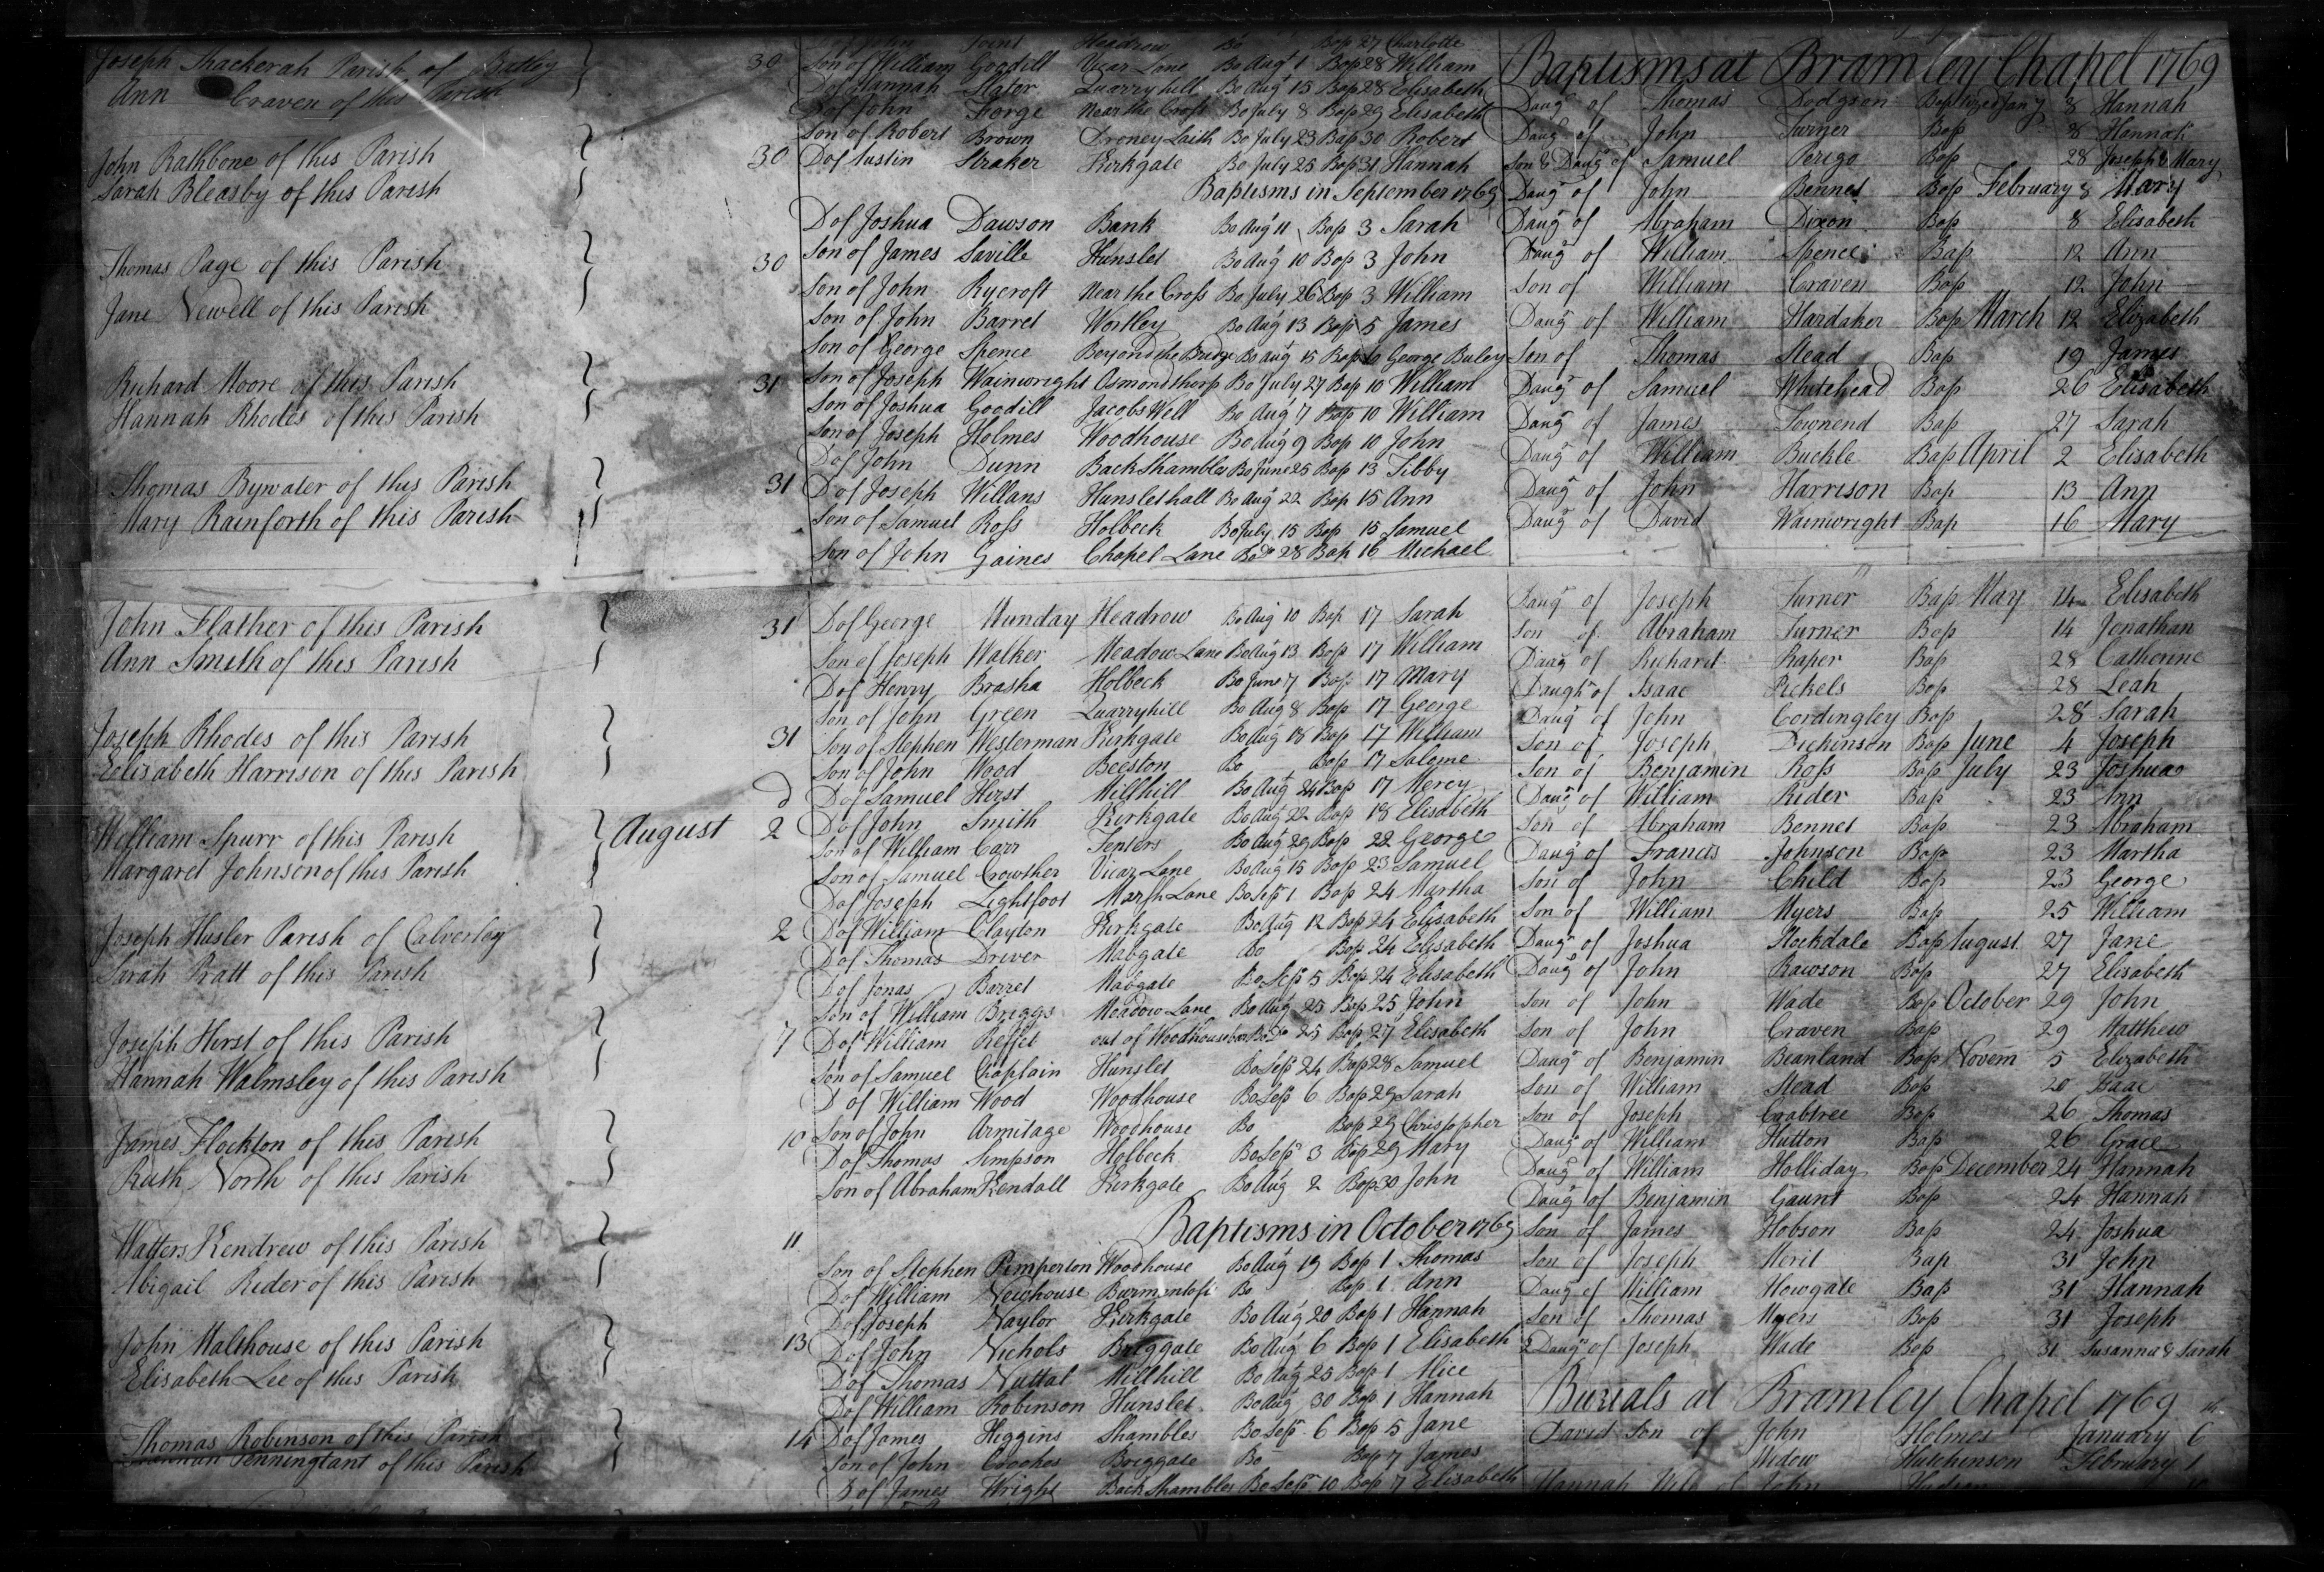 Joseph Thackerah Parish of Batley
Ann Craven of this Parish 30
John Rathbone of this Parish
Sarah Bleasby of this Parish 30
Thomas Page of this Parish
Jane Newell of this Parish 30
Richard Moore of this Parish
Hannah Rhodes of this Parish 31
Thomas Bywater of this Parish
Mary Rainforth of this Parish 31
John Flather of this Parish
Ann Smith of this Parish 31
Joseph Rhodes of this Parish
Elisabeth Harrison of this Parish 31
William Spurr of this Parish August 2
Margaret Johnson of this Parish
Joseph Hasler Parish of Calverley
Sarah Pratt of this Parish 2
Joseph Hirst of this Parish
Hannah Walmsley of this Parish 7
James Flockton of this Parish
Ruth North of this Parish 10
Watters Kendrew of this Parish
Abigail Rider of this Parish 11
John Malthouse of this Parish
Elisabeth Lee of this Parish 13
Thomas Robinson of this Parish
Hannah Penningtant of this Parish 14
John Joint Headrow Bo Bap 27 Charlotte
Son of William Goodill Vicar Lane Bo Aug 1 Bap 28 William
D of Hannah Slator Quarryhill Bo Aug 15 Bap 28 Elisabeth
D of John Forge Near the Cross Bo July 8 Bap 29 Elisabeth
Son of Robert Brown Droney Laith Bo July 23 Bap 30 Robert
D of Austin Straker Kirkgate Bo July 25 Bap 31 Hannah
Baptisms in September 1769
D of Joshua Dawson Bank Bo Aug 11 Bap 3 Sarah
Son of James Saville Hunslet Bo Aug 10 Bap 3 John
Son of John Rycroft Near the Cross Bo July 26 Bap 3 William
Son of John Barret Wortley Bo Aug 13 Bap 5 James
Son of George Spence Beyond the Bridge Bo Aug 15 Bap 10 George Buley
Son of Joseph Wainwright Osmondthorp Bo July 27 Bap 10 William
Son of Joshua Goodill Jacobs Well Bo Aug 7 Bap 10 William
Son of Joseph Holmes Woodhouse Bo Aug 9 Bap 10 John
D of John Dunn Back Shambles Bo June 25 Bap 13 Tibby
D of Joseph Willans Hunslet hall Bo Aug 22 Bap 15 Ann
Son of Samuel Ross Holbeck Bo July 15 Bap 15 Samuel
Son of John Gaines Chapel Lane Bo Do 28 Bap 16 Michael
D of George Munday Headrow Bo Aug 10 Bap 17 Sarah
Son of Joseph Walker Meadow Lane Bo Aug 13 Bap 17 William
D of Henry Brasha Holbeck Bo June 7 Bap 17 Mary
Son of John Green Quarryhill Bo Aug 8 Bap 17 George
Son of Stephen Westerman Kirkgate Bo Aug 18 Bap 17 William
Son of John Wood Beeston Bo Bap 17 Salome
D of Samuel Hirst Millhill Bo Aug 24 Bap 17 Mercy
D of John Smith Kirkgate Bo Aug 22 Bap 18 Elisabeth
Son of William Carr Tenters Bo Aug 29 Bap 22 George
Son of Samuel Crowther Vicar Lane Bo Aug 15 Bap 23 Samuel
D of Joseph Lightfoot Marsh Lane Bo Sep 1 Bap 24 Martha
D of William Clayton Kirkgate Bo Aug 12 Bap 24 Elisabeth
D of Thomas Driver Mabgate Bo Bap 24 Elisabeth
D of Jonas Barret Mabgate Bo Sep 5 Bap 24 Elisabeth
Son of William Briggs Meadow Lane Bo Aug 25 Bap 25 John
D of William Reffit out of Woodhouse bar Bo Do 25 Bap 27 Elisabeth
Son of Samuel Chaplain Hunslet Bo Sep 24 Bap 28 Samuel
D of William Wood Woodhouse Bo Sep 6 Bap 29 Sarah
Son of John Armitage Woodhouse Bo Bap 29 Christopher
D of Thomas Simpson Holbeck Bo Sep 3 Bap 29 Mary
Son of Abraham Kendall Kirkgate Bo Aug 2 Bap 30 John
Baptisms in October 1769
Son of Stephen Pimperton Woodhouse Bo Aug 19 Bap 1 Thomas
D of William Newhouse Burmontofs Bo Bap 1 Ann
D of Joseph Naylor Kirkgate Bo Aug 20 Bap 1 Hannah
D of John Nichols Briggate Bo Aug 6 Bap 1 Elisabeth
D of Thomas Nuttal Millhill Bo Aug 25 Bap 1 Alice
D of William Robinson Hunslet Bo Aug 30 Bap 1 Hannah
D of James Higgins Shambles Bo Sep 6 Bap 5 Jane
Son of John Crookes Briggate Bo Bap 7 James
D of James Wright Back Shambles Bo Sep 10 Bap 7 Elisabeth
Baptisms at Bramley Chapel 1769
Daug of Thomas Dodgson Baptized Jany 8 Hannah
Daug of John Turner Bap 8 Hannah
Son & Daug of Samuel Perigo Bap 28 Joseph & Mary
Daug of John Bennet Bap February 8 Mary
Daug of Abraham Dixon Bap 8 Elisabeth
Daug of William Spence Bap 12 Ann
Son of William Craven Bap 12 John
Daug of William Hardaker Bap March 12 Elizabeth
Son of Thomas Stead Bap 19 James
Daug of Samuel Whitehead Bap 26 Elisabeth
Daug of James Townend Bap 27 Sarah
Daug of William Buckle Bap April 2 Elisabeth
Daug of John Harrison Bap 13 Ann
Daug of David Wainwright Bap 16 Mary
Daug of Joseph Turner Bap May 14 Elisabeth
Son of Abraham Turner Bap 14 Jonathan
Daug of Richard Raper Bap 28 Catherine
Daugh of Isaac Pickels Bap 28 Leah
Daug of John Cordingley Bap 28 Sarah
Son of Joseph Dickinson Bap June 4 Joseph
Son of Benjamin Ross Bap July 23 Joshua
Daug of William Rider Bap 23 Ann
Son of Abraham Bennet Bap 23 Abraham
Daug of Francis Johnson Bap 23 Martha
Son of John Child Bap 23 George
Son of William Myers Bap 25 William
Daug of Joshua Stockdale Bap August 27 Jane
Daug of John Rawson Bap 27 Elisabeth
Son of John Wade Bap October 29 John
Son of John Craven Bap 29 Matthew
Daug of Benjamin Beanland Bap Novem 5 Elizabeth
Son of William Stead Bap 20 Isaac
Son of Joseph Crabtree Bap 26 Thomas
Daug of William Hutton Bap 26 Grace
Daug of William Holliday Bap December 24 Hannah
Daug of Benjamin Gaunt Bap 24 Hannah
Son of James Hobson Bap 24 Joshua
Son of Joseph Merit Bap 31 John
Daug of William Howgate Bap 31 Hannah
Son of Thomas Myers Bap 31 Joseph
2 Daug of Joseph Wade Bap 31 Susanna & Sarah
Burials at Bramley Chapel 1769
David Son of John Holmes January 6
Widow Hutchinson February 1
Hannah Wife of John Hudson